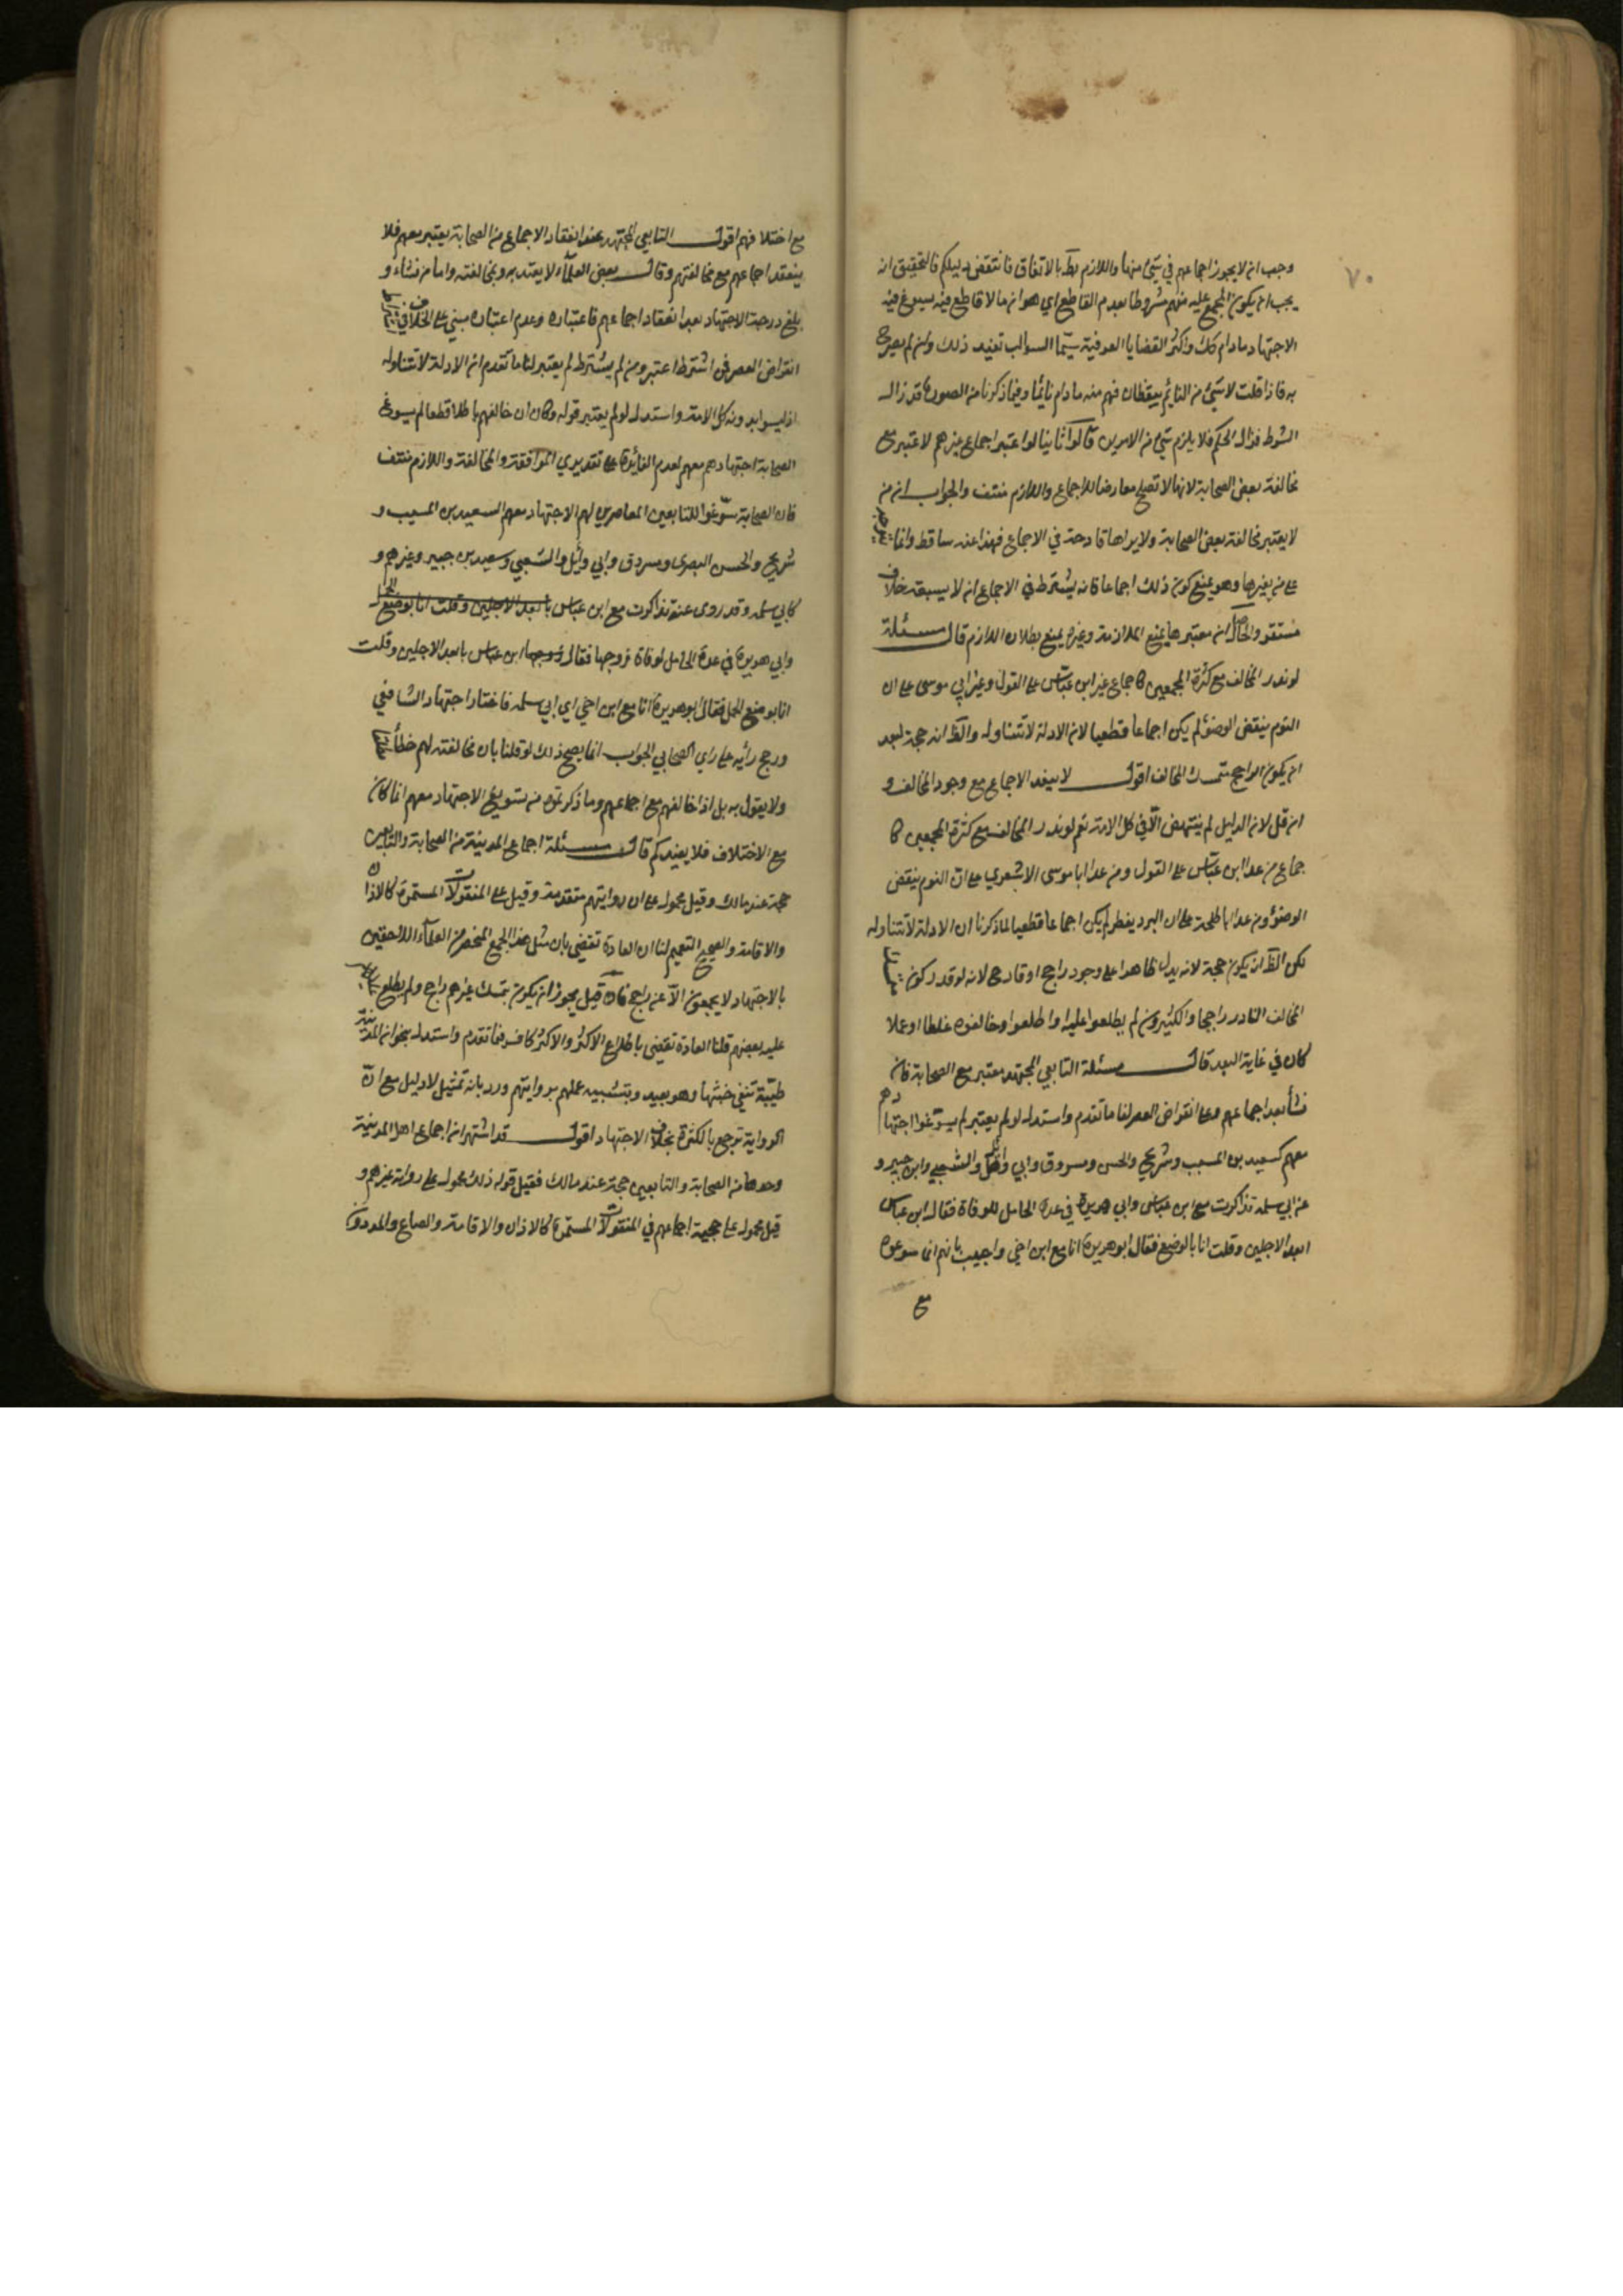 ٧٠
وجب ان لا يجوز اجماعهم في شيئ منها واللازم بط بالاتفاق فانتقض دليلكم فالتحقيق انه
يجب ان يكون المجمع عليه منهم مشروطا بعدم القاطع اي هو ان ما لا قاطع فيه يسوغ فيه
الاجتهاد ما دام كك واكثر القضايا العرفية سيما السوالب تفيد ذلك وان لم يصرح
به فاذا قلت لا شيئ من النائم بيقظان فهم منه ما دام نائما وفيما ذكرنا من الصورة قد زال
الشرط فزال الحكم فلا يلزم شيئ من الامرين قالوا ثانيا لو اعتبر اجماع غيرهم لاعتبر مع
مخالفة بعض الصحابة لانها لا تصلح معارضا للاجماع واللازم منتف والجواب انه من
لا يعتبر مخالفة بعض الصحابة ولا يراها قادحة في الاجماع فهذا عنه ساقط وانما
على من يعتبرها وهو يمنع كون ذلك اجماعا فانه يشترط في الاجماع ان لا يسبقه خلاف
مستقر والحاصل انه معتبرها يمنع الملازمة وغيره يمنع بطلان اللازم قال مسئلة
لو ندر المخالف مع كثرة المجمعين كاجماع غير ابن عباس على العول وغير ابي موسى على ان
النوم ينقض الوضوء لم يكن اجماعا قطعيا لان الادلة لا تتناوله والظ انه حجة لبعد
ان يكون الراجح متمسك المخالف اقول لا ينعقد الاجماع مع وجود المخالف و
ان قل لان الدليل لم ينتهض الا في كل الامة نعم لو ندر المخالف مع كثرة المجمعين كا
جماع من عدا ابن عباس على العول ومن عدا ابا موسى الاشعري على ان النوم ينقض
الوضوء ومن عدا ابا طلحة على ان البرد يفطر لم يكن اجماعا قطعيا لما ذكرنا ان الادلة لا تتناوله
لكن الظ ان يكون حجة لانه يدل ظاهرا على وجود راجح او قادح لانه لو قدر كون
المخالف النادر راجحا والكثيرون لم يطلعوا عليه او اطلعوا وخالفوه غلطا او عمدا
كان في غاية البعد قال مسئلة التابعي المجتهد معتبر مع الصحابة فان
نشأ بعد اجماعهم فعلى انقراض العصر لنا ما تقدم واستدل لو لم يعتبر لم يسوغوا اجتهادهم
معهم كسعيد بن المسيب وشريح والحسن ومسروق وابي وائل والشعبي وابن جبير و
عن ابي سلمة تذاكرت مع ابن عباس وابي هريرة في عدة الحامل للوفاة فقال ابن عباس
ابعد الاجلين وقلت انا بالوضع فقال ابو هريرة انا مع ابن اخي واجيب بانهم انما سوغوه
مع
مع اختلافهم اقول التابعي المجتهد عند انعقاد الاجماع من الصحابة يعتبر معهم فلا
ينعقد اجماعهم مع مخالفتهم وقال بعض العلماء لا يعتد به وبمخالفته واما من نشاء و
بلغ درجة الاجتهاد بعد انعقاد اجماعهم فاعتباره وعدم اعتباره مبني على الخلاف في
انقراض العصر فمن اشترط اعتبر ومن لم يشترط لم يعتبر لنا ما تقدم ان الادلة لا تتناوله
اذ ليسوا بدونه كل الامة واستدل لو لم يعتبر قوله وكان ان خالفهم باطلا قطعا لم يسوغ
الصحابة اجتهادهم معهم لعدم الفائدة على تقديري الموافقة والمخالفة واللازم منتف
فان الصحابة سوغوا للتابعين المعاصرين لهم الاجتهاد معهم كسعيد بن المسيب و
شريح والحسن البصري ومسروق وابي وائل والشعبي وسعيد بن جبير وغيرهم و
كابي سلمة وقد روى عنه تذاكرت مع ابن عباس بابعد الاجلين وقلت انا بوضع الحمل
وابي هريرة في عدة الحامل لوفاة زوجها فقال زوجها ابن عباس بابعد الاجلين وقلت
انا بوضع الحمل فقال ابو هريرة انا مع ابن اخي اي ابي سلمة فاختار اجتهاد الشافعي
ورجح رأيه على راي الصحابي الجواب انما يصح ذلك لو قلنا بان مخالفته لهم خطأ
ولا يقول به بل اذا خالفهم مع اجماعهم وما ذكرتموه من تسويغ الاجتهاد معهم انما كان
مع الاختلاف فلا يفيدكم قال مسئلة اجماع المدينة من الصحابة والتابعين
حجة عند مالك وقيل محمول على ان روايتهم متقدمة وقيل على المنقولات المستمرة كالاذان
والاقامة والصحيح التعميم لنا ان العادة تقضي بان مثل هذا الجمع المنحصر من العلماء اللاحقين
بالاجتهاد لا يجمعون الا عن راجح فان قيل يجوز ان يكون متمسك غيرهم راجح ولم يطلع
عليه بعضهم قلنا العادة تقضي باطلاع الاكثر والاكثر كاف فيما تقدم واستدل بنحو ان المدينة
طيبة تنفي خبثها وهو بعيد وبتشبيه عملهم بروايتهم ورد بانه تمثيل لا دليل مع ان
الرواية ترجح بالكثرة بخلاف الاجتهاد اقول قد اشتهر ان اجماع اهل المدينة
وحدها من الصحابة والتابعين حجة عند مالك فقيل قوله ذلك محمول على رواية غيرهم و
قيل محمول على حجية اجماعهم في المنقولات المستمرة كالاذان والاقامة والصاع والمد دون